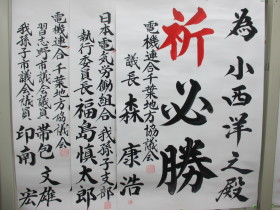 為小西洋之殿
祈必勝
電機連合千葉地方協議会
議長森康浩
日本電気労働組合我孫子支部
執行委員長福島慎太郎
電機連合千葉地方協議会
習志野市議会議員帯包文雄
我孫子市議会議員印南宏